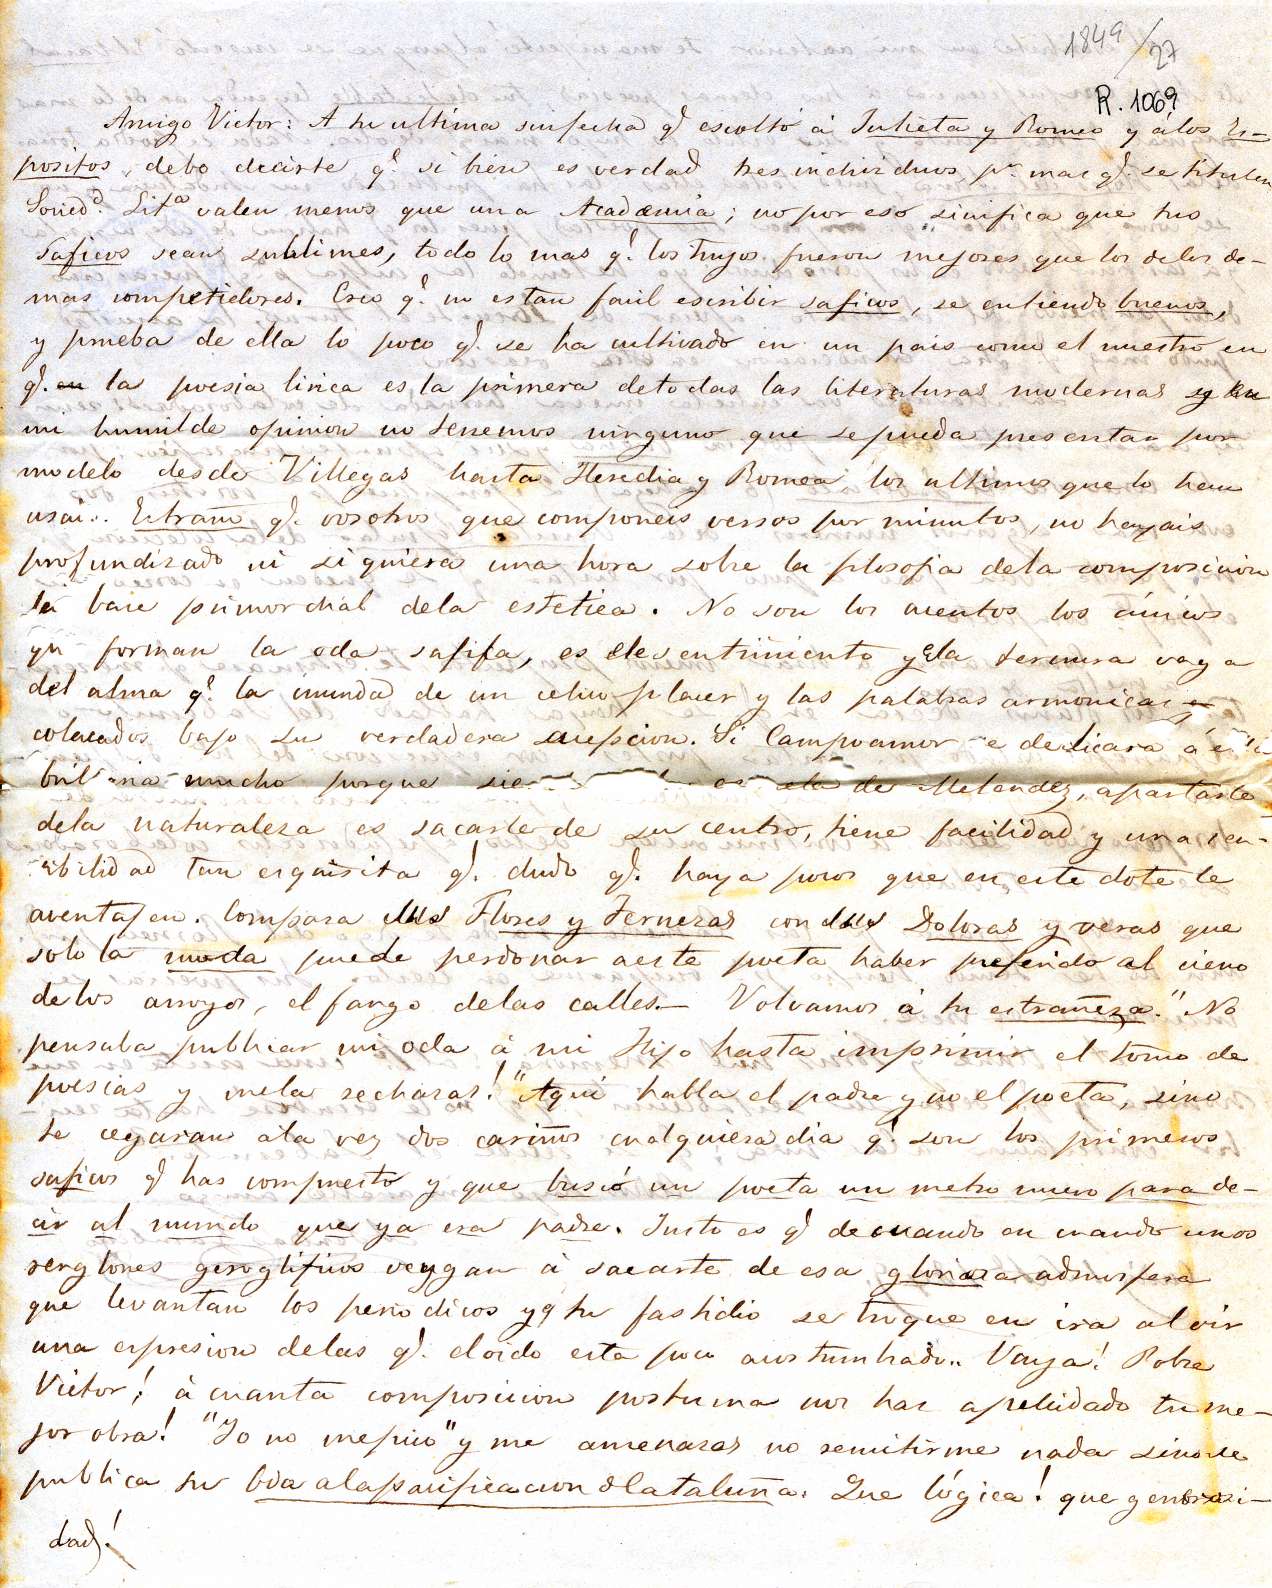 1849/27
R. 1069
Amigo Victor: A tu ultima sinfecha q.e escoltó á Julieta y Romeo y álos Es-
positos, debo decirte q.e si bien es verdad tres individuos p.r mas q.e se titulen
Socied.d Lit.a valen menos que una Academia; no por eso sinifica que tus
Saficos sean sublimes, todo lo mas q.e los tuyos fueron mejores que los delos de-
mas competidores. Creo q.e no es tan facil escribir saficos, se entiende buenos,
y prueba de ella lo poco q.e se ha cultivado en un pais como el nuestro en
q.e la poesia lirica es la primera detodas las literaturas modernas y en
mi humilde opinion no tenemos ninguno que se pueda presentar por
modelo desde Villegas hasta Heredia y Romea los ultimos que lo han
usa... Estraño q.e vosotros que componeis versos por minutos, no hayais
profundizado ni siquiera una hora sobre la filosofia dela composicion
la base primordial dela estetica. No son los acentos los únicos
qu forman la oda safica, es el sentimiento y la ternura vaga
del alma q.e la inunda de un celico placer y las palabras armonicas
colocadas bajo su verdadera acepcion. Si Campoamor se dedicara á e
bril ria mucho porque sie es ela de Melendez, apartarle
dela naturaleza es sacarle de su centro, tiene facilidad y una sen-
sibilidad tan esquisita q.e dudo q.e haya pocos que en este dote le
aventajen. Compara sus Flores y Ternezas con sus Doloras y veras que
solo la moda puede perdonar aeste poeta haber preferido al cieno
delos arroyos, el fango delas calles.— Volvamos á tu estrañeza. "No
pensaba publicar mi oda á mi Hijo hasta imprimir el tomo de
poesias y mela rechazas!" Aqui habla el padre y no el poeta, sino
te cegaran ala vez dos cariños cualquiera dia q.e son los primeros
saficos q.e has compuesto y que buscó un poeta un metro nuevo para de-
cir al mundo que ya era padre. Justo es q.e decuando en cuando unos
renglones geroglificos vengan á sacarte de esa gloriosa admosfera
que levantan los periodicos y q.e tu fastidio se truque en ira al oir
una espresion delas q.e eloido esta poco acostumbrado.. Vaya! Pobre
Victor! á cuanta composicion postuma nos has apellidado tu me-
jor obra! "Yo no me pico" y me amenazas no remitirme nada sinose
publica tu Oda alapacificacion d Cataluña. Que lógica! que generosi-
dad!